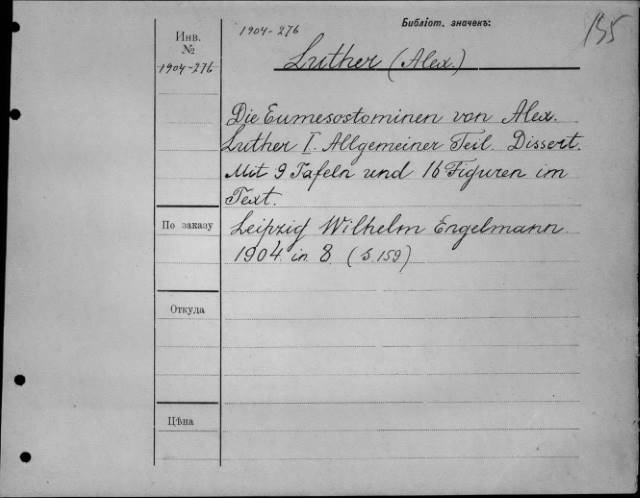 Библіот. значекъ:
1904-276
155
Инв.
№
1904-276
Luther (Alex.)
Die Eumesostominen von Alex.
Luther I. Allgemeiner Teil. Dissert.
Mit 9 Tafeln und 16 Figuren im
Text.
По заказу
Leipzig Wilhelm Engelmann.
1904. in. 8. (S. 159)
Откуда
Цѣна